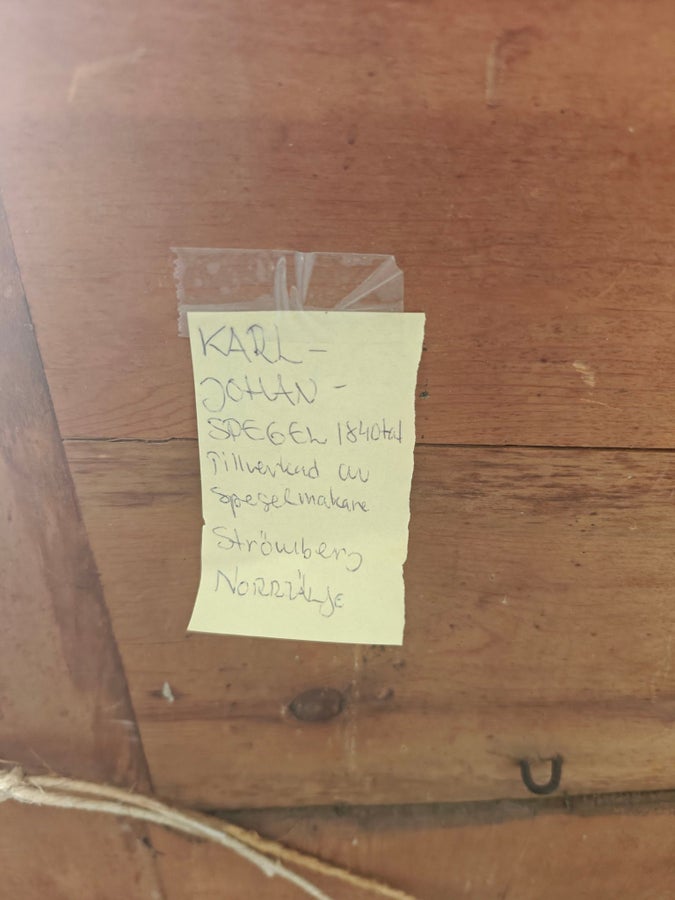 KARL-
JOHAN-
SPEGEL 1840tal
Tillverkad av
Spegelmakare
Strömberg
NORRTÄLJE